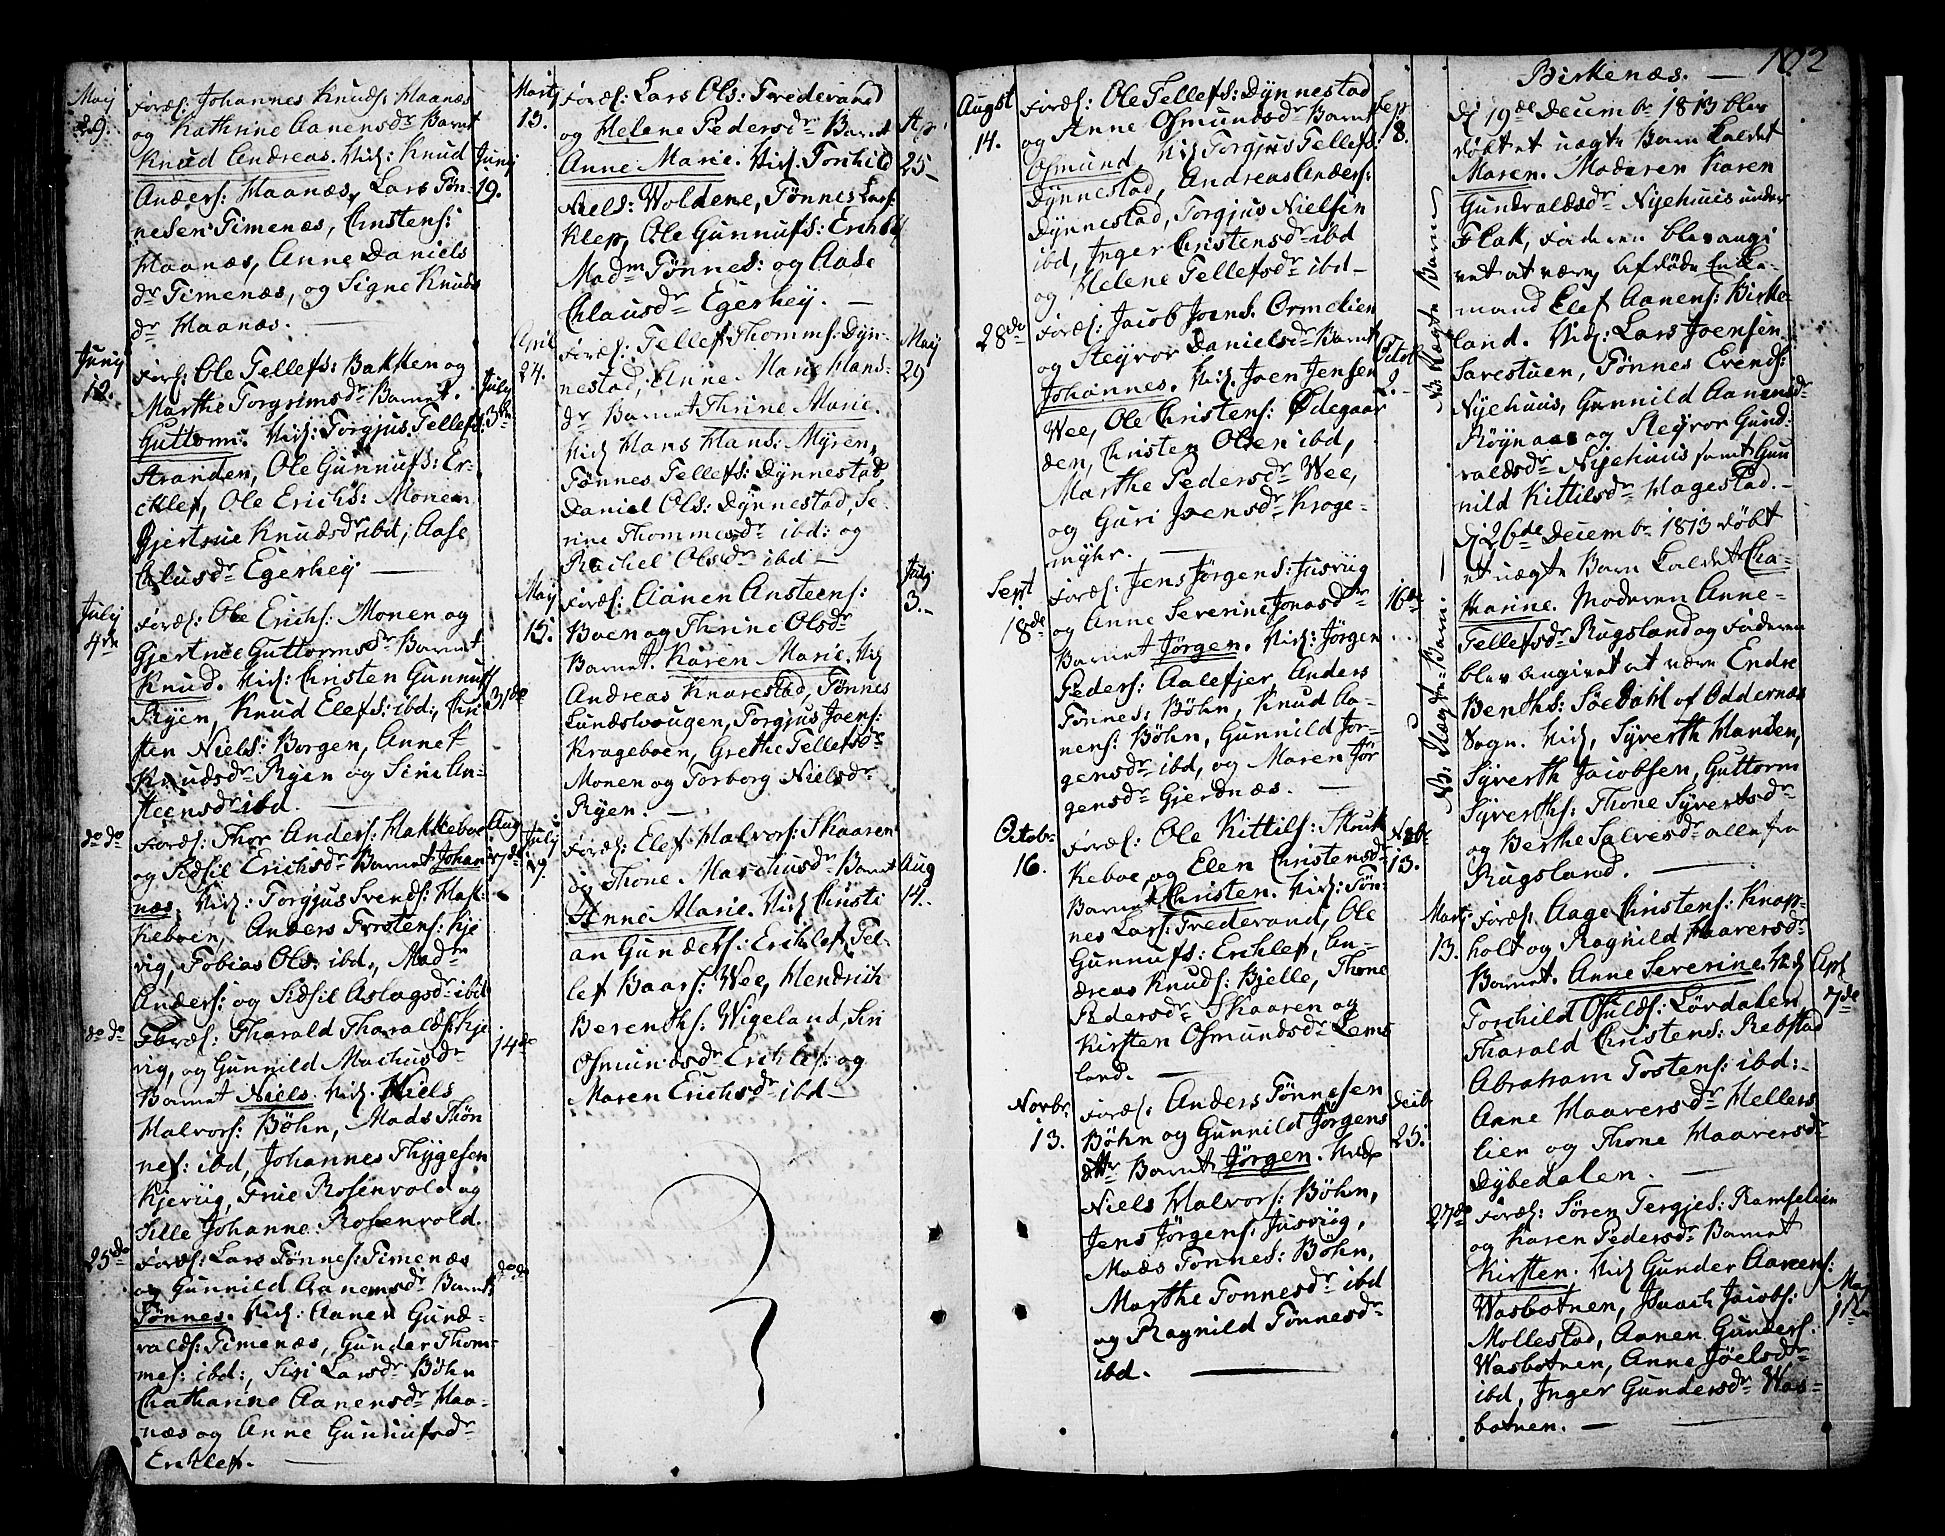 102
Maij
29.
Foræl: Johannes Knuds: Haanæs
og Kathrine Aanensdr Barnet
Knud Andreas. Vid: Knud
Anders: Haanæs, Lars Tøn-
nesen Timenæs, Christens:
Haanæs, Anne Daniels
dr Timenæs, og Signe Knuds
dr Haanæs.
Junij
19.
Junij
12.
Foræl: Ole Tellefs: Bakken og
Marthe Torgrimsdr Barnet.
Guttorm. Vid: Torgjus Tellefs:
Stranden, Ole Gunnufs: Er-
cklef, Ole Erichs: Monen
Gjertrue Knudsdr ibid, Aase
Clusdr Egerhey
July
3de
July
4de
Foræl: Ole Erichs: Monen og
Gjertrue Guttormsdr Barnet
Knud. Vid: Christen Gunnufs
Ryen, Knud Elefs: ibd:, Chri
sten Niels: Borgen, Anne
Knudsdr Ryen og Sini An-
steensdr ibd.
31de
do do
Foræl: Thor Anders: Hakkeboe
og Sidsil Erichsdr Barnet Johan
nes. Vid: Torgjus Svends: Hak-
keboen, Anders Torstens: Kje
vig, Tobias Ols: ibd:, Madr
Anders: og Sidsil Aslagsdr ibid
Aug
7de
do do
Foræl: Tharald Tharalds: Kje
vig, og Gunnild Machusdr
Barnet Niels. Vid. Niels
Halvors: Bøhn, Mads Thøn
nes: ibd, Johannes Thygesen
Kjeviig, Frue Rosenvold og
Sille Johanne Rosenvold.
14de
25de
Foræl: Lars Tønnes: Timenæs
og Gunnild Aanensdr Barnet
Tønnes. Vid: Aanen Gund-
valds: Timenæs, Gunder Thom-
mes: ibd:, Siri Larsdr Bøhn
Chatharine Aanensdr Haa-
næs og Anne Gunnufsdr
Ercklef.
do do
Martij
13.
Foræl: Lars Ols: Frederand
og Helene Pedersdr Barnet
Anne Marie. Vid: Torkild
Niels: Woldene, Tønnes Lars:
Klep, Ole Gunnufs: Erchlef
Madm Tønnes: og Aase
Clausdr Egerhey.
Apr:
25
April
24.
Foræl: Tellef Thomms: Dyn-
nestad, Anne Marie Hans-
dr Barnet Thrine Marie.
Vid Hans Hans: Myren,
Tønnes Tellefs: Dynnestad
Daniel Ols: Dynnestad, Se-
rine Thommesdr ibd: og
Rachel Olsdr ibd
Maij
29
Maij
15.
Foræl: Aanen Ansteens:
Boen og Thrine Olsdr
Barnet. Karen Marie. Vid
Andreas Knarestad, Tønnes
Lundsvougen, Torgjus Joens:
Krageboen, Grethe Tellefsdr
Monen og Torborg Nielsdr
Ryen.
July
3.
July
19.
Foræl: Elef Halvors: Skaaren
og Thone Marchusdr Barnet
Anne Marie. Vid Christi
an Gunders: Erchlef, Tel-
lef Baars: Wee, Hendrich
Berenths: Wigeland, Siri
Osmundsdr Erchlef: og
Maren Erichsdr ibd
Aug
14.
Augst
14.
Foræl: Ole Tellefs: Dynnestad
og Anne Osmundsdr Barnet
Osmund, Vid Torgjus Tellefs:
Dynnestad, Andreas Anders:
Dynnestad, Torgjus Nielsen
ibd, Inger Christensdr ibd
og Helene Tellefsdr ibd
Sep
8.
28de
Foræl: Jacob Joens. Ormelien
og Steyvor Danielsdr Barnet
Johannes. Vid. Joen Jensen
Wee, Ole Christens: Ødegaar
den, Christen Olsen ibd,
Marthe Pedersdr Wee,
og Guri Joensdr Kroge-
myhr.
Octob
2.
Sept
18de
Foræl: Jens Jørgens: Jusviig
og Anne Severine Jonasdtr
Barnet Jørgen. Vid: Jørgen
Peders: Aalefjer, Anders
Tønnes: Bøhn, Knud Aa-
nens: Bøhn, Gunnild Jør-
gensdr ibd, og Maren Jør
gensdr Gjerdnæs.
16de
Octobr
16.
Foræl: Ole Kittils: Skouk
keboe og Elen Christensd
Barnet Christen. Vid: Tøn-
nes Lars: Frederand, Ole
Gunnufs: Erchlef, An-
dreas Knuds: Bjelle, Thone
Pedersdr Skaaren og
Kirsten Osmundsdr Lems
land.
Nobr
13.
Novbr
13.
Foræl: Anders Tønnesen
Bøhn og Gunnild Jørgens
dtr Barnet Jørgen. Vid
Niels Halvors: Bøhn,
Jens Jørgens: Jusviig,
Mads Tønnes: Bøhn,
Marthe Tønnesdr ibd
og Ragnild Tønnesdr
ibd.
Decb
25.
NB. Uægte Barn
NB: Uægte Barn.
Birkenæs.
Dj 19de Decembr 1813 blev
døbt et uægte Barn kaldet
Maren. Moderen Karen
Gundvaldsdr Nyehuus under
Flak, Faderen blev angi
vet at være, afdøde Enke-
mand Elef Aanens: Birke-
land. Vid: Lars Joensen
Sarestuen, Tønnes Evends:
Nyehuus, Gunnild Aanensdr
Røynaas og Steyvor Gund-
valdsdr Nyehuus samt Gun
nild Kittilsdr Hagestad.
Dj 26de Decembr 1813 døbt
et uægte Barn kaldet Cha-
tharine. Moderen Anne
Tellefsdr Rugsland og Faderen
blev angivet at være Endre
Benths: Søedahl af Oddernæs
Sogn. Vid, Syverth Hansen,
Syverth Jacobsen, Guttorm
Syverths: Thone Syvertsdr
og Berthe Salvesdr alle fra
Rugsland.
Marts
13.
Foræl: Aage Christens: Knap-
holt og Ragnild Haaversdr
Barnet. Anne Severine. Vid
Torchild Osulds: Lørdalen
Tharald Christens: Rebstad
Abraham Tostens: ibd:
Anne Haaversdr Hellers
lien og Thone Haaversdr
Dybedalen
Apl
7de
27de
Foræl: Søren Tergjes: Ramselien
og Karen Pedersdr Barnet
Kirsten. Vid Gunder Aanens:
Wasbotnen, Isaach Jacobs:
Mollestad, Aanen Gunders.
Wasbotnen, Anne Joelsdr
ibd, Inger Gundersdr Was-
botnen.